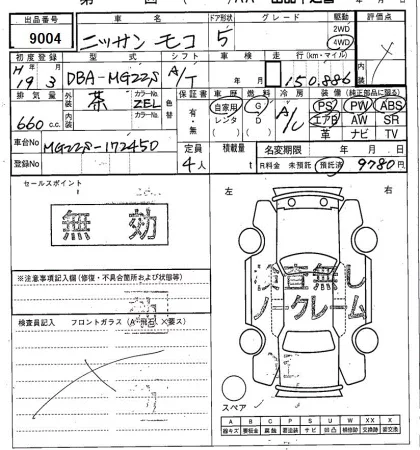 出品番号 車名 ドア形状 グレード 駆動 評価点
9004 ニッサン モコ 5 2WD 4WD
初度登録 型式 シフト 車検 走行(km・マイル) 内装
H 年 月 19 3 DBA-MG22S A/T 年 月 150,886
排気量 外装 茶 カラーNo. ZEL 色替 保証書 車歴 燃料 冷房 装備(純正部品に限る)
660 c.c. 内装 カラーNo. 有・無 自家用 G A/C PS PW ABS
レンタ D エアB AW SR
( ) ( ) 革 ナビ TV
車台No MG22S-172450 定員 積載量 名変期限 年 月 日
登録No 4人 t R料金 未預託 預託済 9780円
セールスポイント 左 右
無効
査無し
ノークレーム
※注意事項記入欄(修復・不具合箇所および状態等)
検査員記入 フロントガラス(A・飛石・X要ス)
スペア
A B C P S U W XX X
線キズ 要板金 腐蝕 要塗装 サビ 凹凸 補修跡 交換跡 要交換